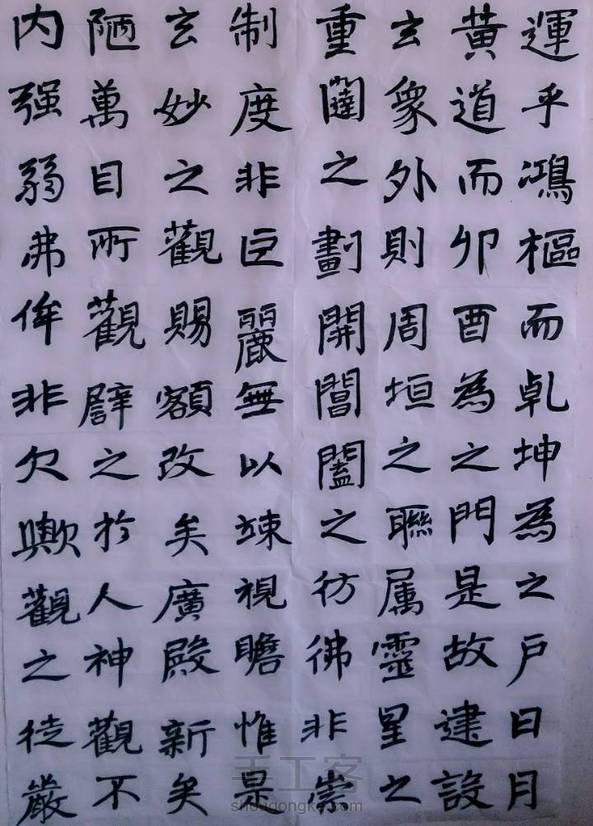 運乎鴻樞而乹坤為之戶日月
黃道而卯酉為之門是故建設
玄象外則周垣之聯属靈星之
重闥之劃開閶闔之彷彿非崇
制度非巨麗無以竦視瞻惟是
玄妙之觀賜額改矣廣殿新矣
陋萬目所觀譬之於人神觀不
内强弱弗侔非欠歟觀之徒嚴
手工客